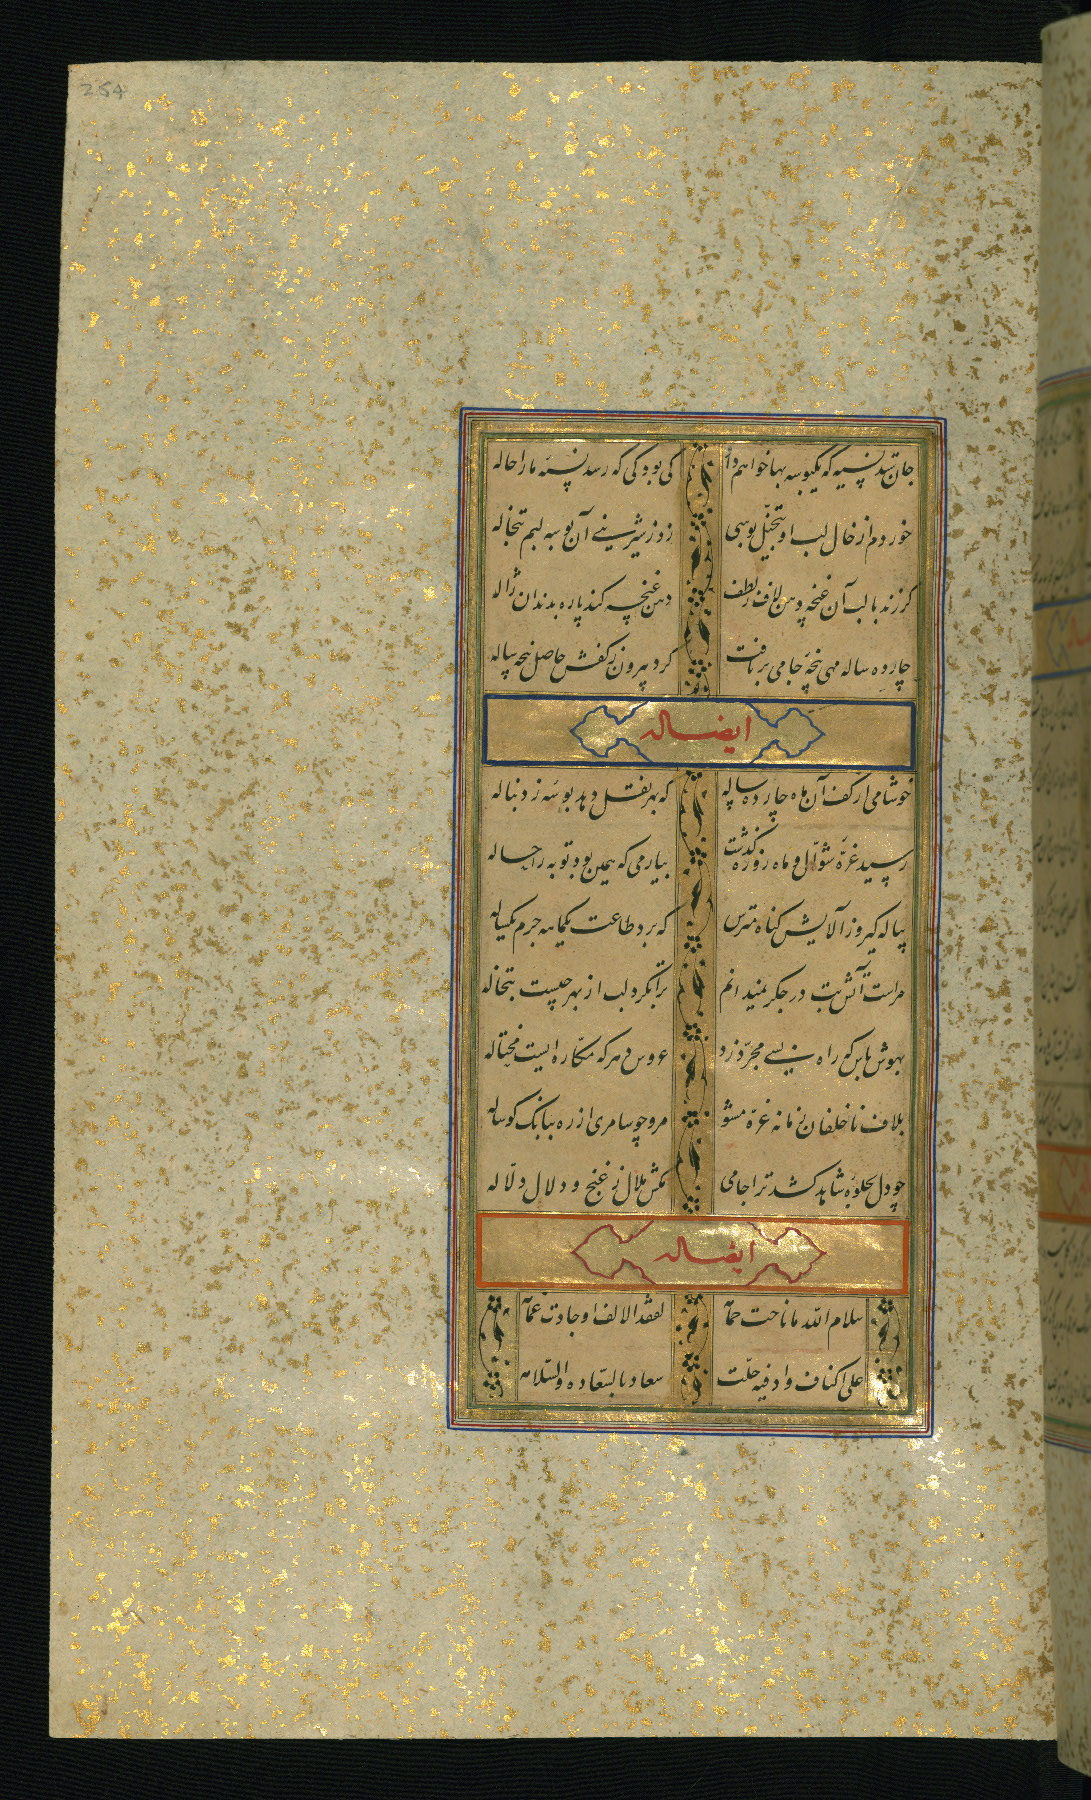 254
جان شد نسیه که یکبوسه بها خواهم داد کی بود کی که رسد نسیه ما را حاله
خوردم از خال لب او بتخیل بوسی زد ز شیرینی آن بوسه لبم تبخاله
گر زند با لب آن غنچه دهن لاف ز لطف دهن غنچه کند پاره بدندان ژاله
چارده ساله مهی پنجه جامی برتافت کرد بیرون ز کفش حاصل پنجه ساله
ایضا له
خوشا می از کف آن ماه چارده ساله که بهر نقل دهد بوسه ز دنباله
رسید غره شوال و ماه روزه گذشت بیار می که همین بود توبه را حاله
پیاله گیر و ز آلایش گناه مترس که برد طاعت یکماهه جرم یکساله
مراست آتش تب در جگر نمیدانم ترا که کرد لب از بهر چیست تبخاله
بهوش باش که راه بسی مجرد زد عروس دهر که مکاره ایست محتاله
بلاف ناخلفان زمانه غره مشو مرو چو سامری از ره ببانگ گوساله
چو دل بجلوه شاهد کشد ترا جامی مکش ملال ز غنج و دلال دلاله
ایضا له
سلام الله ما ناحت حمامه لفقد الالف او جادت غمامه
علی اکناف واد فیه حلت سعاد بالسعاده والسلامه